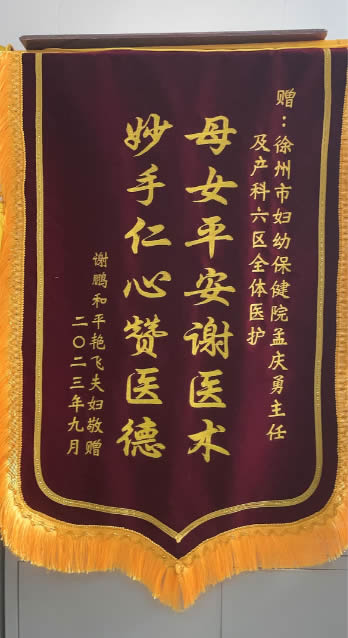 赠：徐州市妇幼保健院孟庆勇主任
及产科六区全体医护
母女平安谢医术
妙手仁心赞医德
谢鹏和平艳飞夫妇敬赠
二〇二三年九月